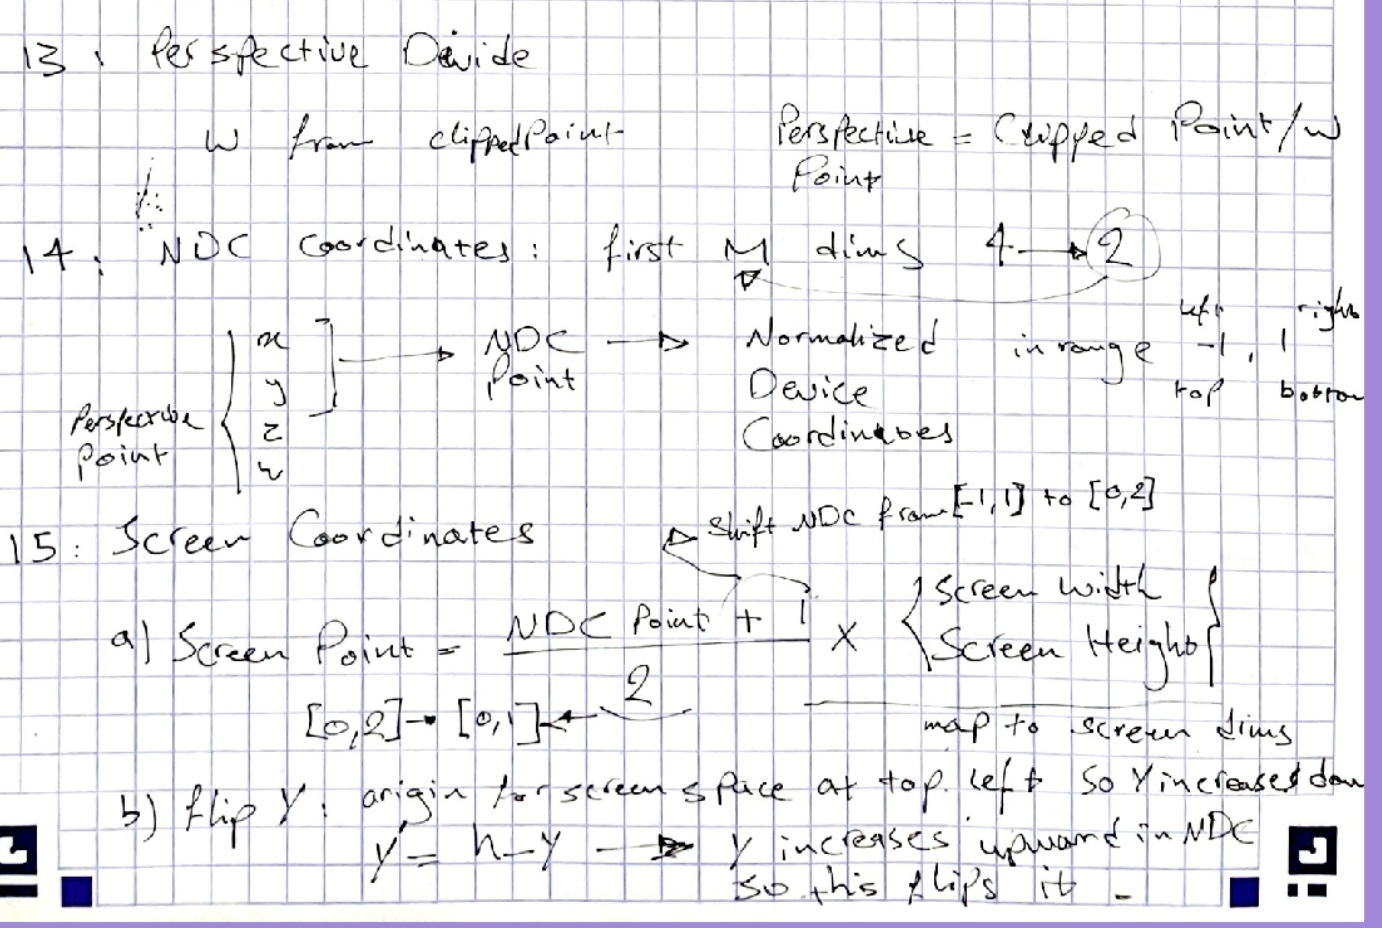 13: Perspective Devide
w from clippedPoint
Perspective = Clipped Point/w
Point
14: NDC Coordinates: first M dims 4 → 2
left right
x
y
z
w
Perspective
Point
NDC
Point
→ Normalized
Device
Coordinates
in range -1, 1
top bottom
15: Screen Coordinates
Shift NDC from [-1,1] to [0,2]
a) Screen Point = NDC Point + 1
2
X { Screen Width
Screen Height }
[0,2] → [0,1] ←
map to screen dims
b) flip Y: origin for screen space at top left so Y increases down
y' = h-y → Y increases upward in NDC
so this flips it